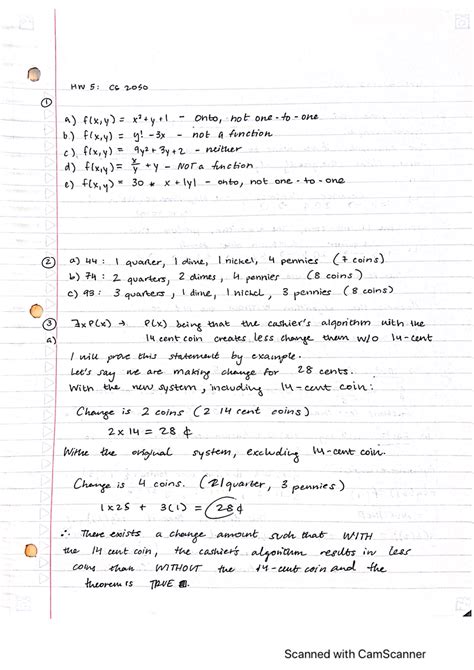 HW 5: CS 2050
①
a) f(x,y) = x³+y+1 - onto, not one-to-one
b.) f(x,y) = y! -3x - not a function
c.) f(x,y) = 9y²+3y+2 - neither
d) f(x,y) = x/y + y - NOT a function
e) f(x,y) = 30 * x + |y| - onto, not one-to-one
② a) 44: 1 quarter, 1 dime, 1 nickel, 4 pennies (7 coins)
b) 74: 2 quarters, 2 dimes, 4 pennies (8 coins)
c) 93: 3 quarters, 1 dime, 1 nickel, 3 pennies (8 coins)
③ ∃xP(x) → P(x) being that the cashier's algorithm with the
a) 14 cent coin creates less change them w/o 14-cent
I will prove this statement by example.
Let's say we are making change for 28 cents.
With the new system, including 14-cent coin:
Change is 2 coins (2 14 cent coins)
2 x 14 = 28 ¢
Withe the original system, excluding 14-cent coin.
Change is 4 coins. (1 quarter, 3 pennies)
1x25 + 3(1) = 28¢
∴ There exists a change amount such that WITH
the 14 cent coin, the cashier's algorithm results in less
coins than WITHOUT the 14-cent coin and the
theorem is TRUE
Scanned with CamScanner